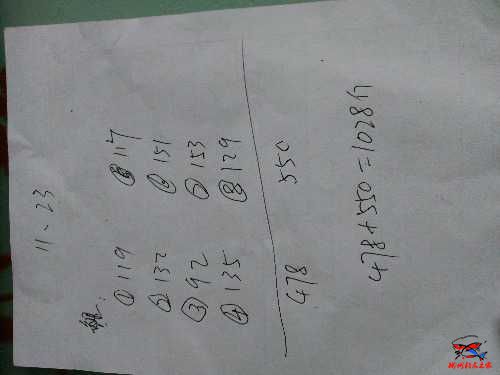 11、23
① 119 ⑤ 117
② 132 ⑥ 151
③ 92 ⑦ 153
④ 135 ⑧ 129
478 550
478+550=1028斤